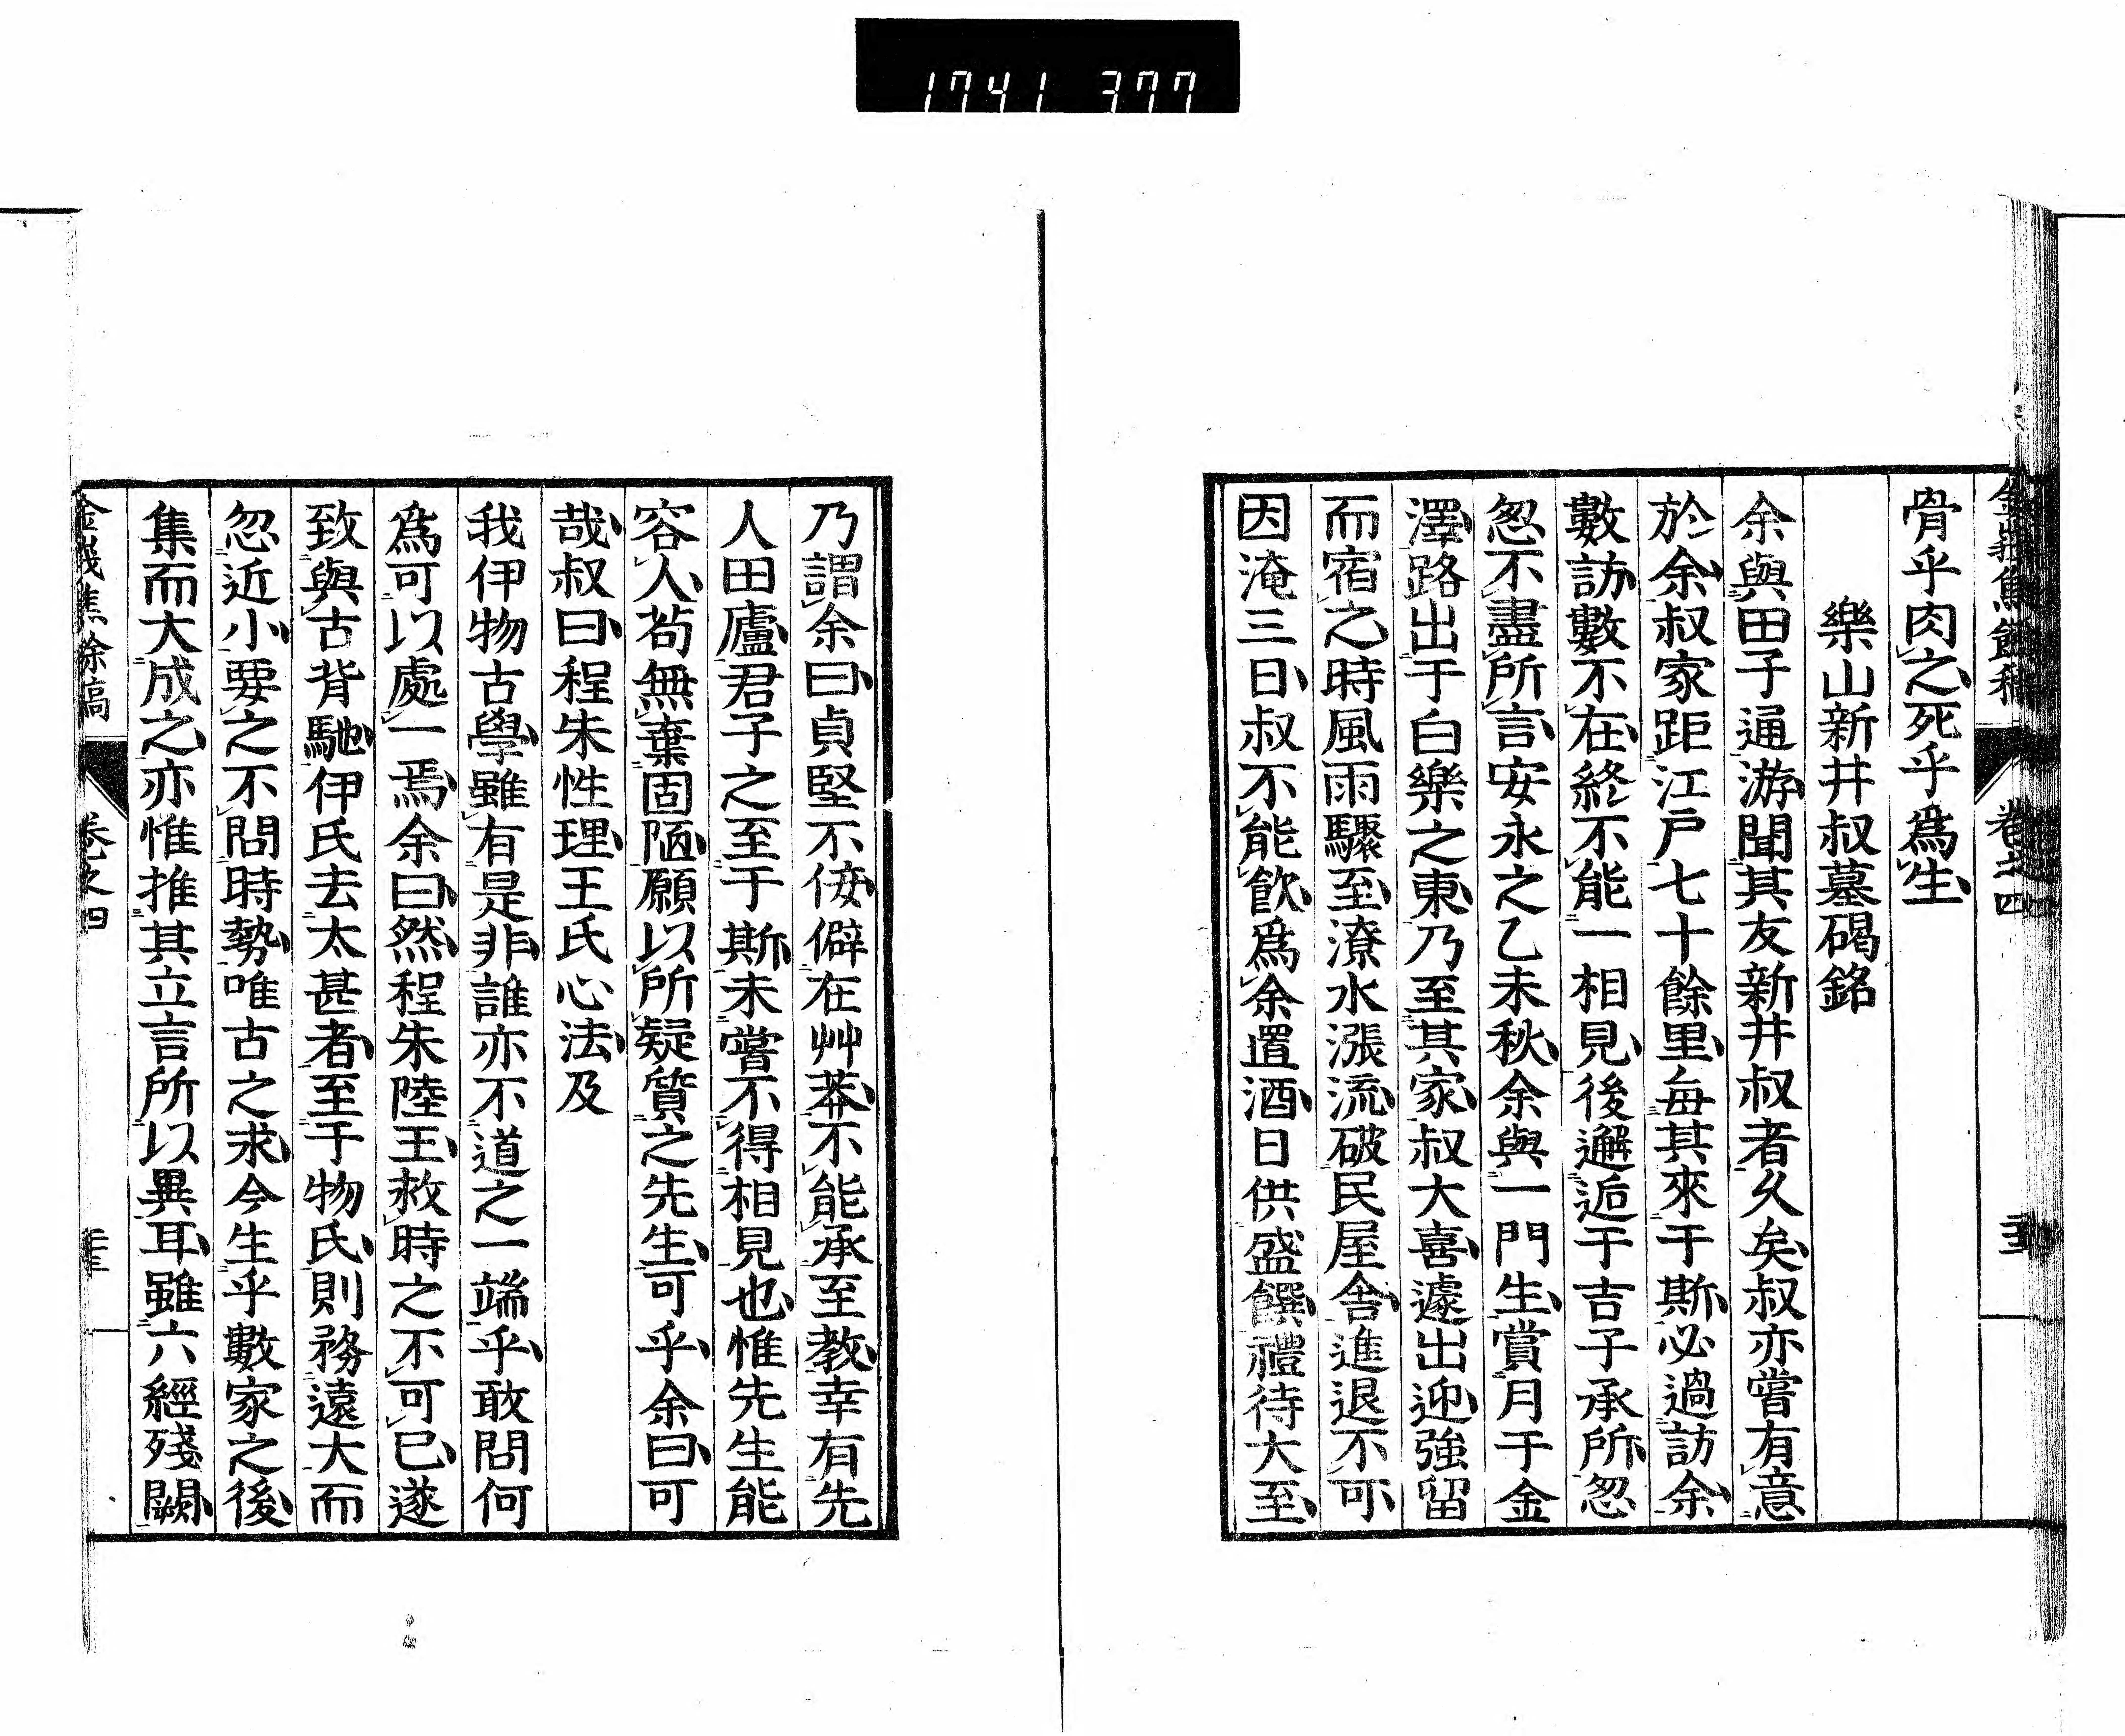 1741 377
骨乎肉之死乎爲生
樂山新井叔墓碣銘
余與田子通游聞其友新井叔者久矣叔亦嘗有意
於余叔家距江戸七十餘里毎其來于斯必過訪余
數訪數不在終不能一相見後邂逅于吉子承所怱
怱不盡所言安永之乙未秋余與一門生賞月于金
澤路出于白樂之東乃至其家叔大喜遽出迎強留
而宿之時風雨驟至潦水漲流破民屋舎進退不可
因淹三日叔不能飮爲余置酒日供盛饌禮待大至
乃謂余曰貞堅不佞僻在艸莽不能承至教幸有先
人田廬君子之至于斯未嘗不得相見也惟先生能
容人苟無棄固陋願以所疑質之先生可乎余曰可
哉叔曰程朱性理王氏心法及
我伊物古學雖有是非誰亦不道之一端乎敢問何
爲可以處一焉余曰然程朱陸王救時之不可已遂
致與古背馳伊氏去太甚者至于物氏則務遠大而
忽近小要之不問時勢唯古之求今生乎數家之後
集而大成之亦惟推其立言所以異耳雖六經殘闕
金峩焦餘稿
卷之四